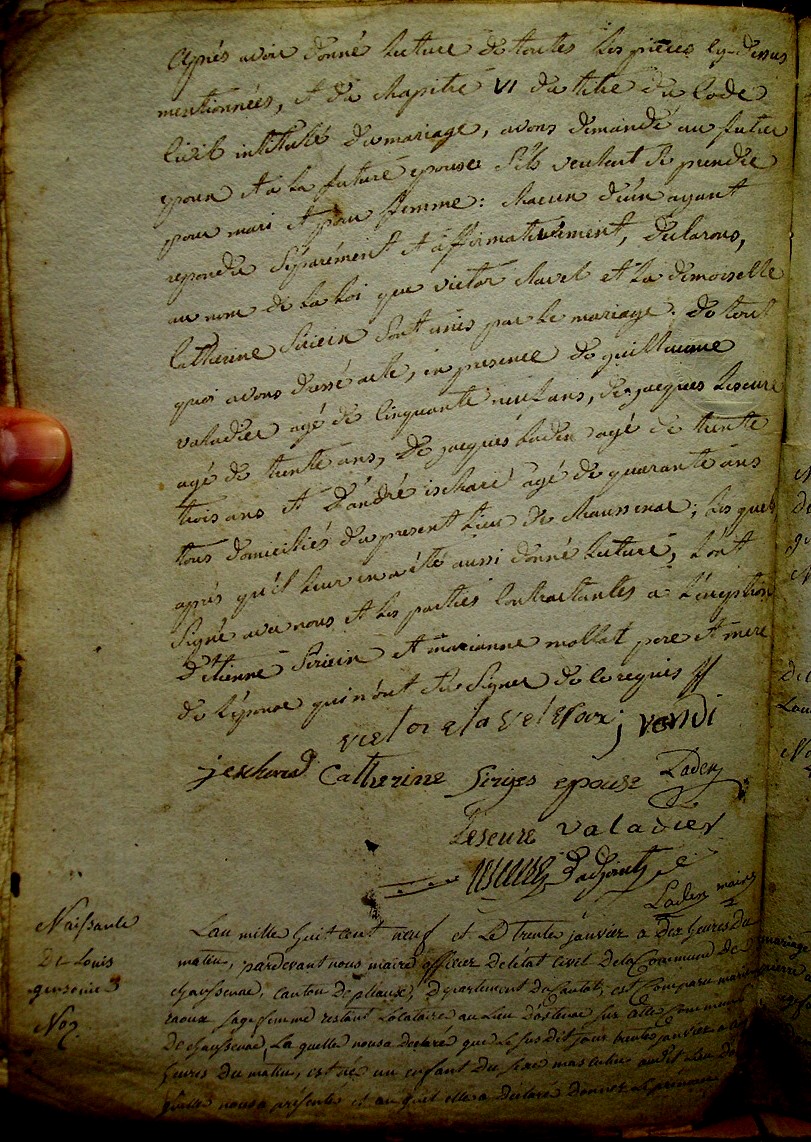 Après avoir donné lecture de toutes les pièces cy-dessus
mentionnées, et du chapitre VI du titre du Code
Civil intitulé du mariage, avons demandé au futur
epoux et à la future epouse s'ils veulent se prendre
pour mari et pour femme: chacun d'eux ayant
repondu séparément et affirmativement, declarons,
au nom de la loi que victor Clavel et la demoiselle
Catherine Sirieix sont unis par le mariage. de tout
quoi avons dressé acte, en presence de guillaume
valadier agé de cinquante neuf ans, de jacques Leseure
agé de trente ans, de jacques Laden agé de trente
trois ans et d'andré ischard agé de quarante ans
tous domiciliés du present lieu de Chaussenac; les quels
après qu'il leur en a été aussi donné lecture, l'ont
signé avec nous et les parties contractantes a l'exception
d'etienne Sirieix et marianne mollat pere et mere
de l'epouse qui n'ont sçu signer de ce requis
victor clavel epoux
jeschard Catherine Sirges epouse Laden
Leseure valadier
d'adjoint
Laden maire
Naissance
De Louis
No 2
L'an mille huit cent neuf et le trente janvier a dix heures du
matin, pardevant nous maire officier de l'état civil de la Commune de
chaussenac, canton de pleaux, département du Cantal, est comparu marie
raoux sage femme restant locataire au lieu d'ostenac sur cette commune
de chaussenac, la quelle nous a declaré que le susdit jour trente janvier a
heures du matin, est né un enfant du sexe masculin audit lieu
quelle nous a présenté et au quel elle a déclaré donner le prénom